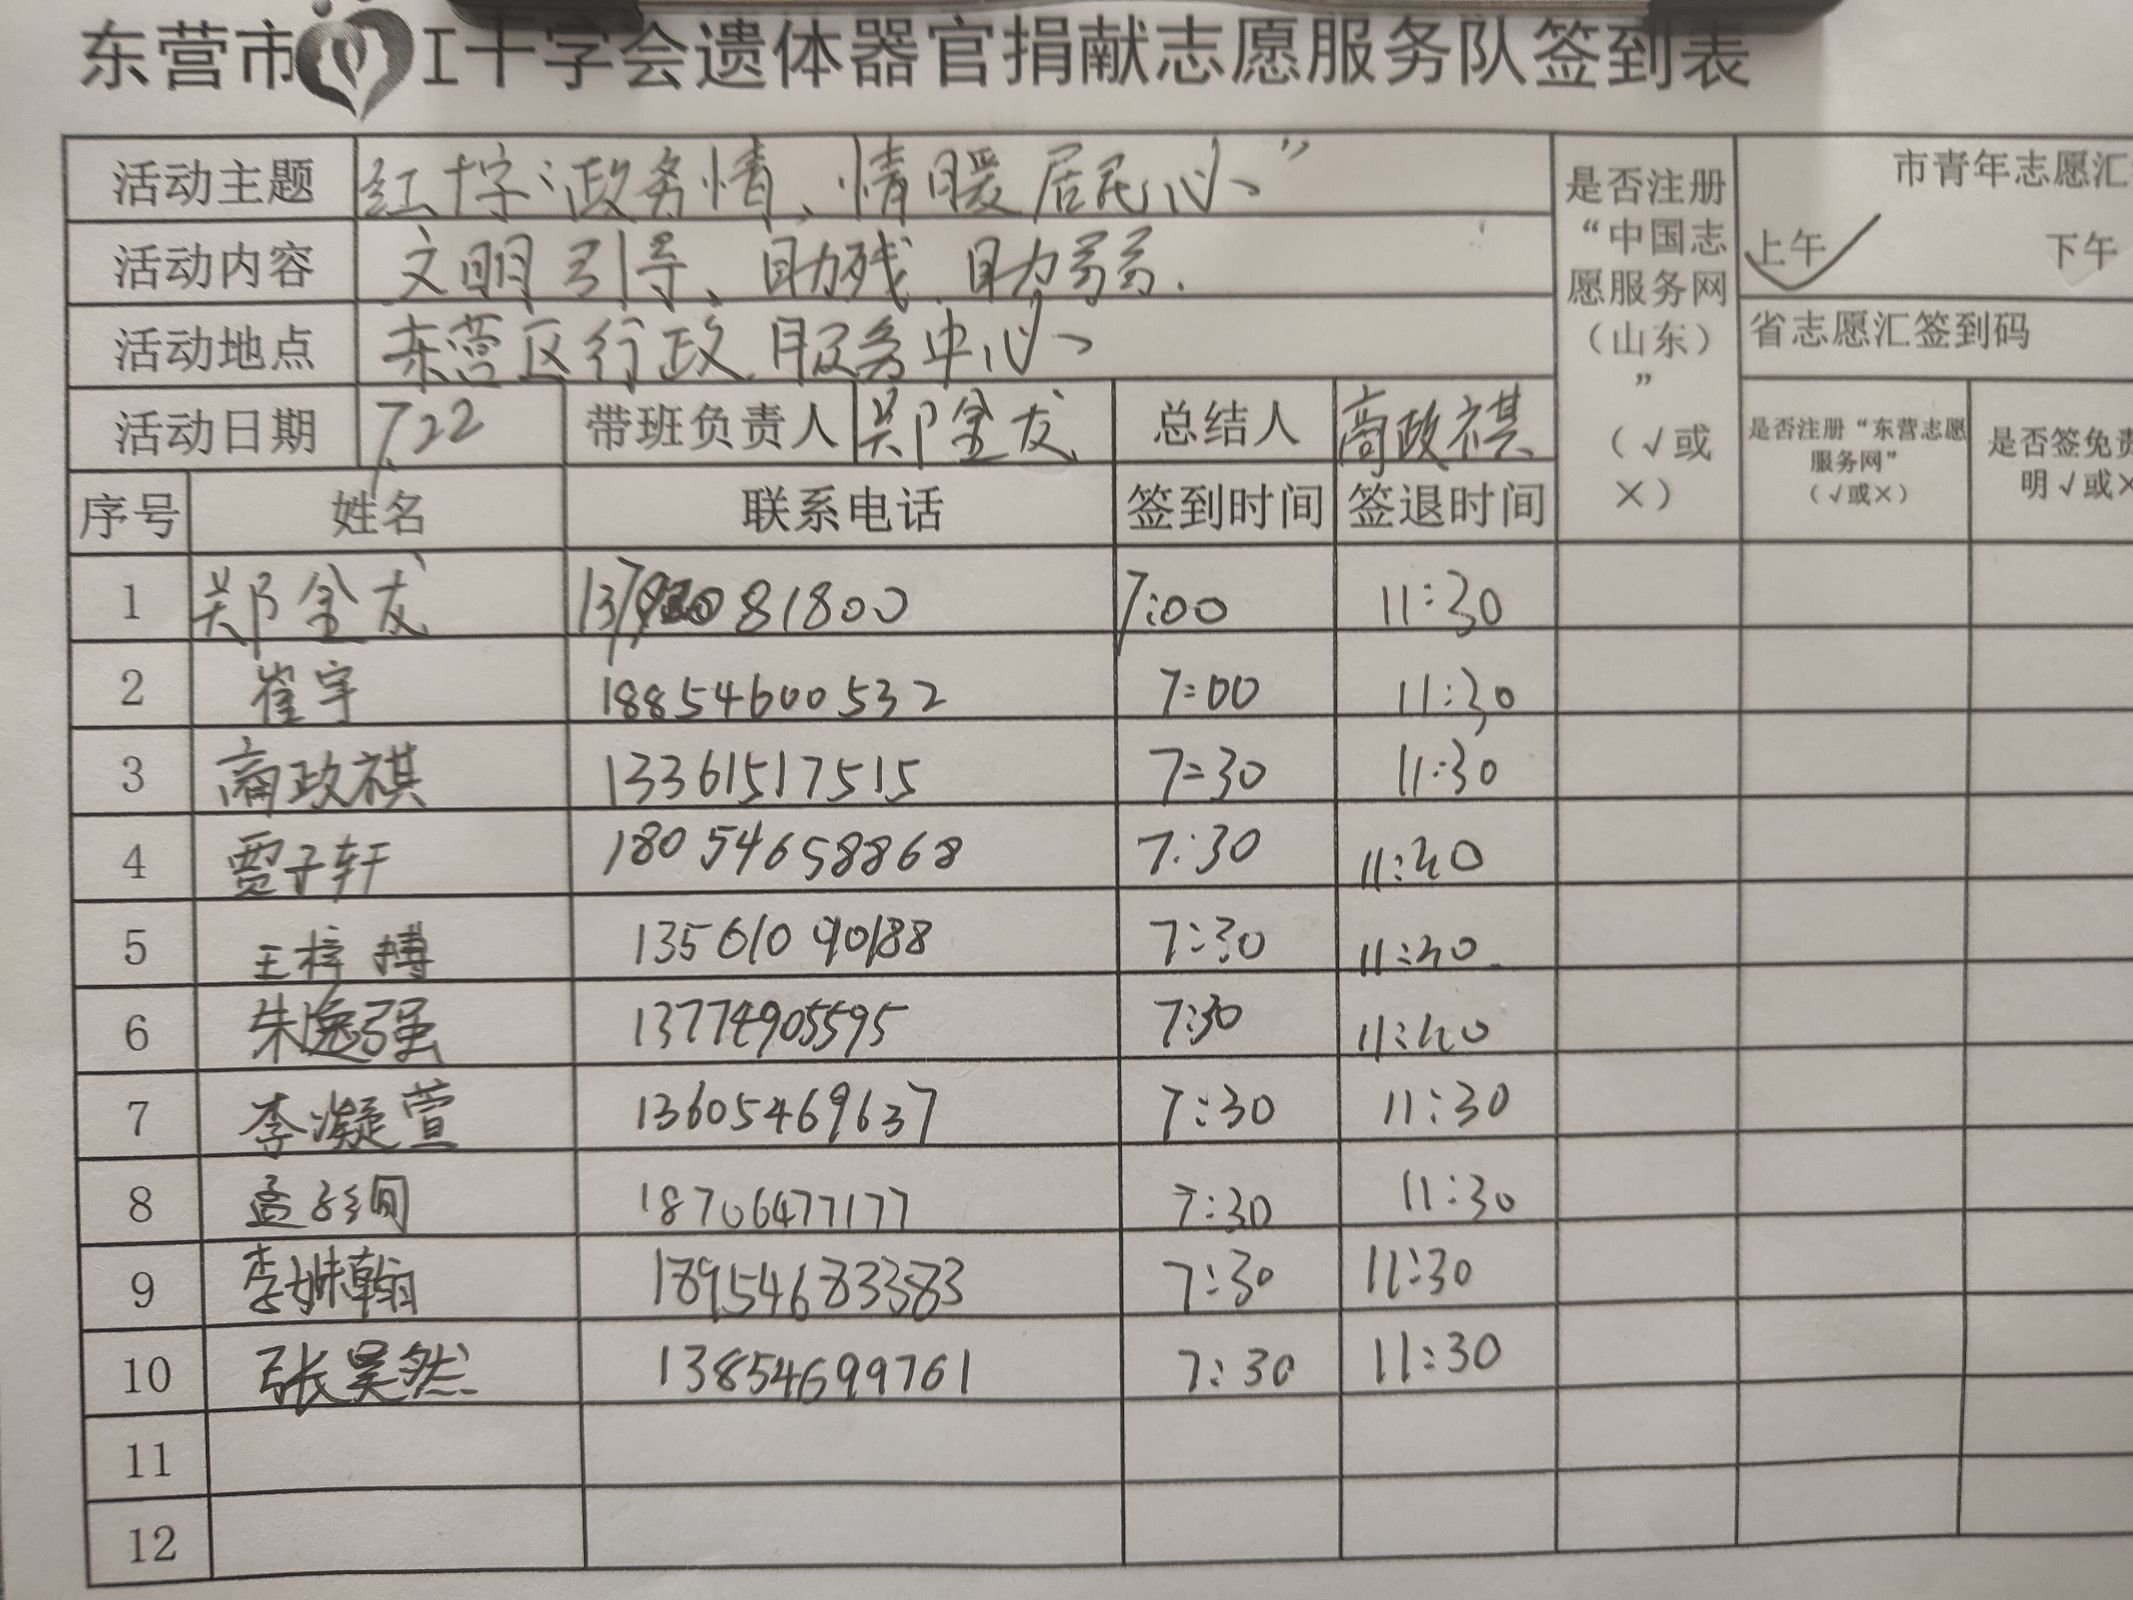 东营市红十字会遗体器官捐献志愿服务队签到表
活动主题 红十字政务情、情暖居民心”
活动内容 文明引导、助残、助弱.
活动地点 东营区行政服务中心
活动日期 7.22 带班负责人 郑金友 总结人 商政祺
是否注册“中国志愿服务网（山东）”（√或×）
市青年志愿汇
上午 √ 下午
省志愿汇签到码
是否注册“东营志愿服务网”（√或×）
是否签免责
明√或×
序号 姓名 联系电话 签到时间 签退时间
1 郑金友 81800 7:00 11:30
2 崔宇 18854600532 7:00 11:30
3 商政祺 13361517515 7:30 11:30
4 贾子轩 18054658868 7:30 11:40
5 王梓搏 13561090188 7:30 11:40
6 朱逸强 13774905595 7:30 11:40
7 李凝萱 13605469637 7:30 11:30
8 孟 18706477177 7:30 11:30
9 李姝翰 18954683383 7:30 11:30
10 张昊然 13854699761 7:30 11:30
11
12